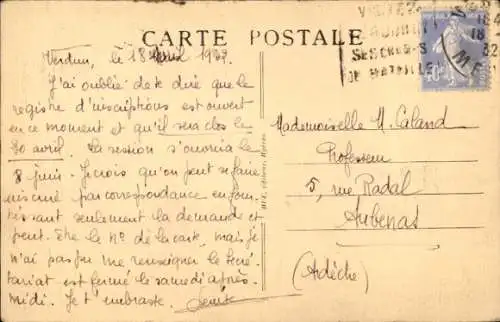 CARTE POSTALE
Verdun, le 18 Avril 1932.
J'ai oublié de te dire que le
registre d'inscriptions est ouvert
en ce moment et qu'il sera clos le
30 avril. La session s'ouvrira le
8 juin. Je crois qu'on peut se faire
inscrire par correspondance en four
nissant seulement la demande et
peut-être le No de la carte, mais je
n'ai pas pu me renseigner le secré
tariat est fermé le samedi après-
midi. Je t'embrasse.
Mademoiselle M. Caland
Professeur
5, rue Radal
Aubenas
(Adèche)
VISITEZ
SES CHAMPS
DE BATAILLE
18
32
40c